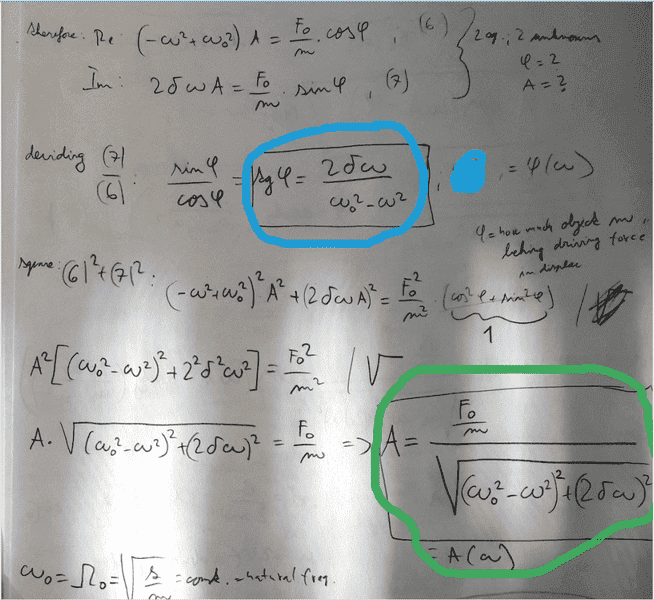 therefore: Re: (-ω² + ω₀²) A = F₀/m · cosφ , (6) } 2 eq., 2 unknowns
φ = ?
Im: 2δωA = F₀/m · sinφ , (7)
A = ?
deviding (7)/(6) : sinφ/cosφ = tgφ = 2δω/(ω₀² - ω²) ; = φ(ω)
φ = how much object is
behing driving force
in displac
square: (6)² + (7)² : (-ω² + ω₀²)² A² + (2δωA)² = F₀²/m² · (cos²φ + sin²φ) /
1
A² [(ω₀² - ω²)² + 2²δ²ω²] = F₀²/m² / √
A · √((ω₀² - ω²)² + (2δω)²) = F₀/m => A = (F₀/m)/√((ω₀² - ω²)² + (2δω)²)
= A(ω)
ω₀ = Ω₀ = √(s/m) = const. - natural freq.